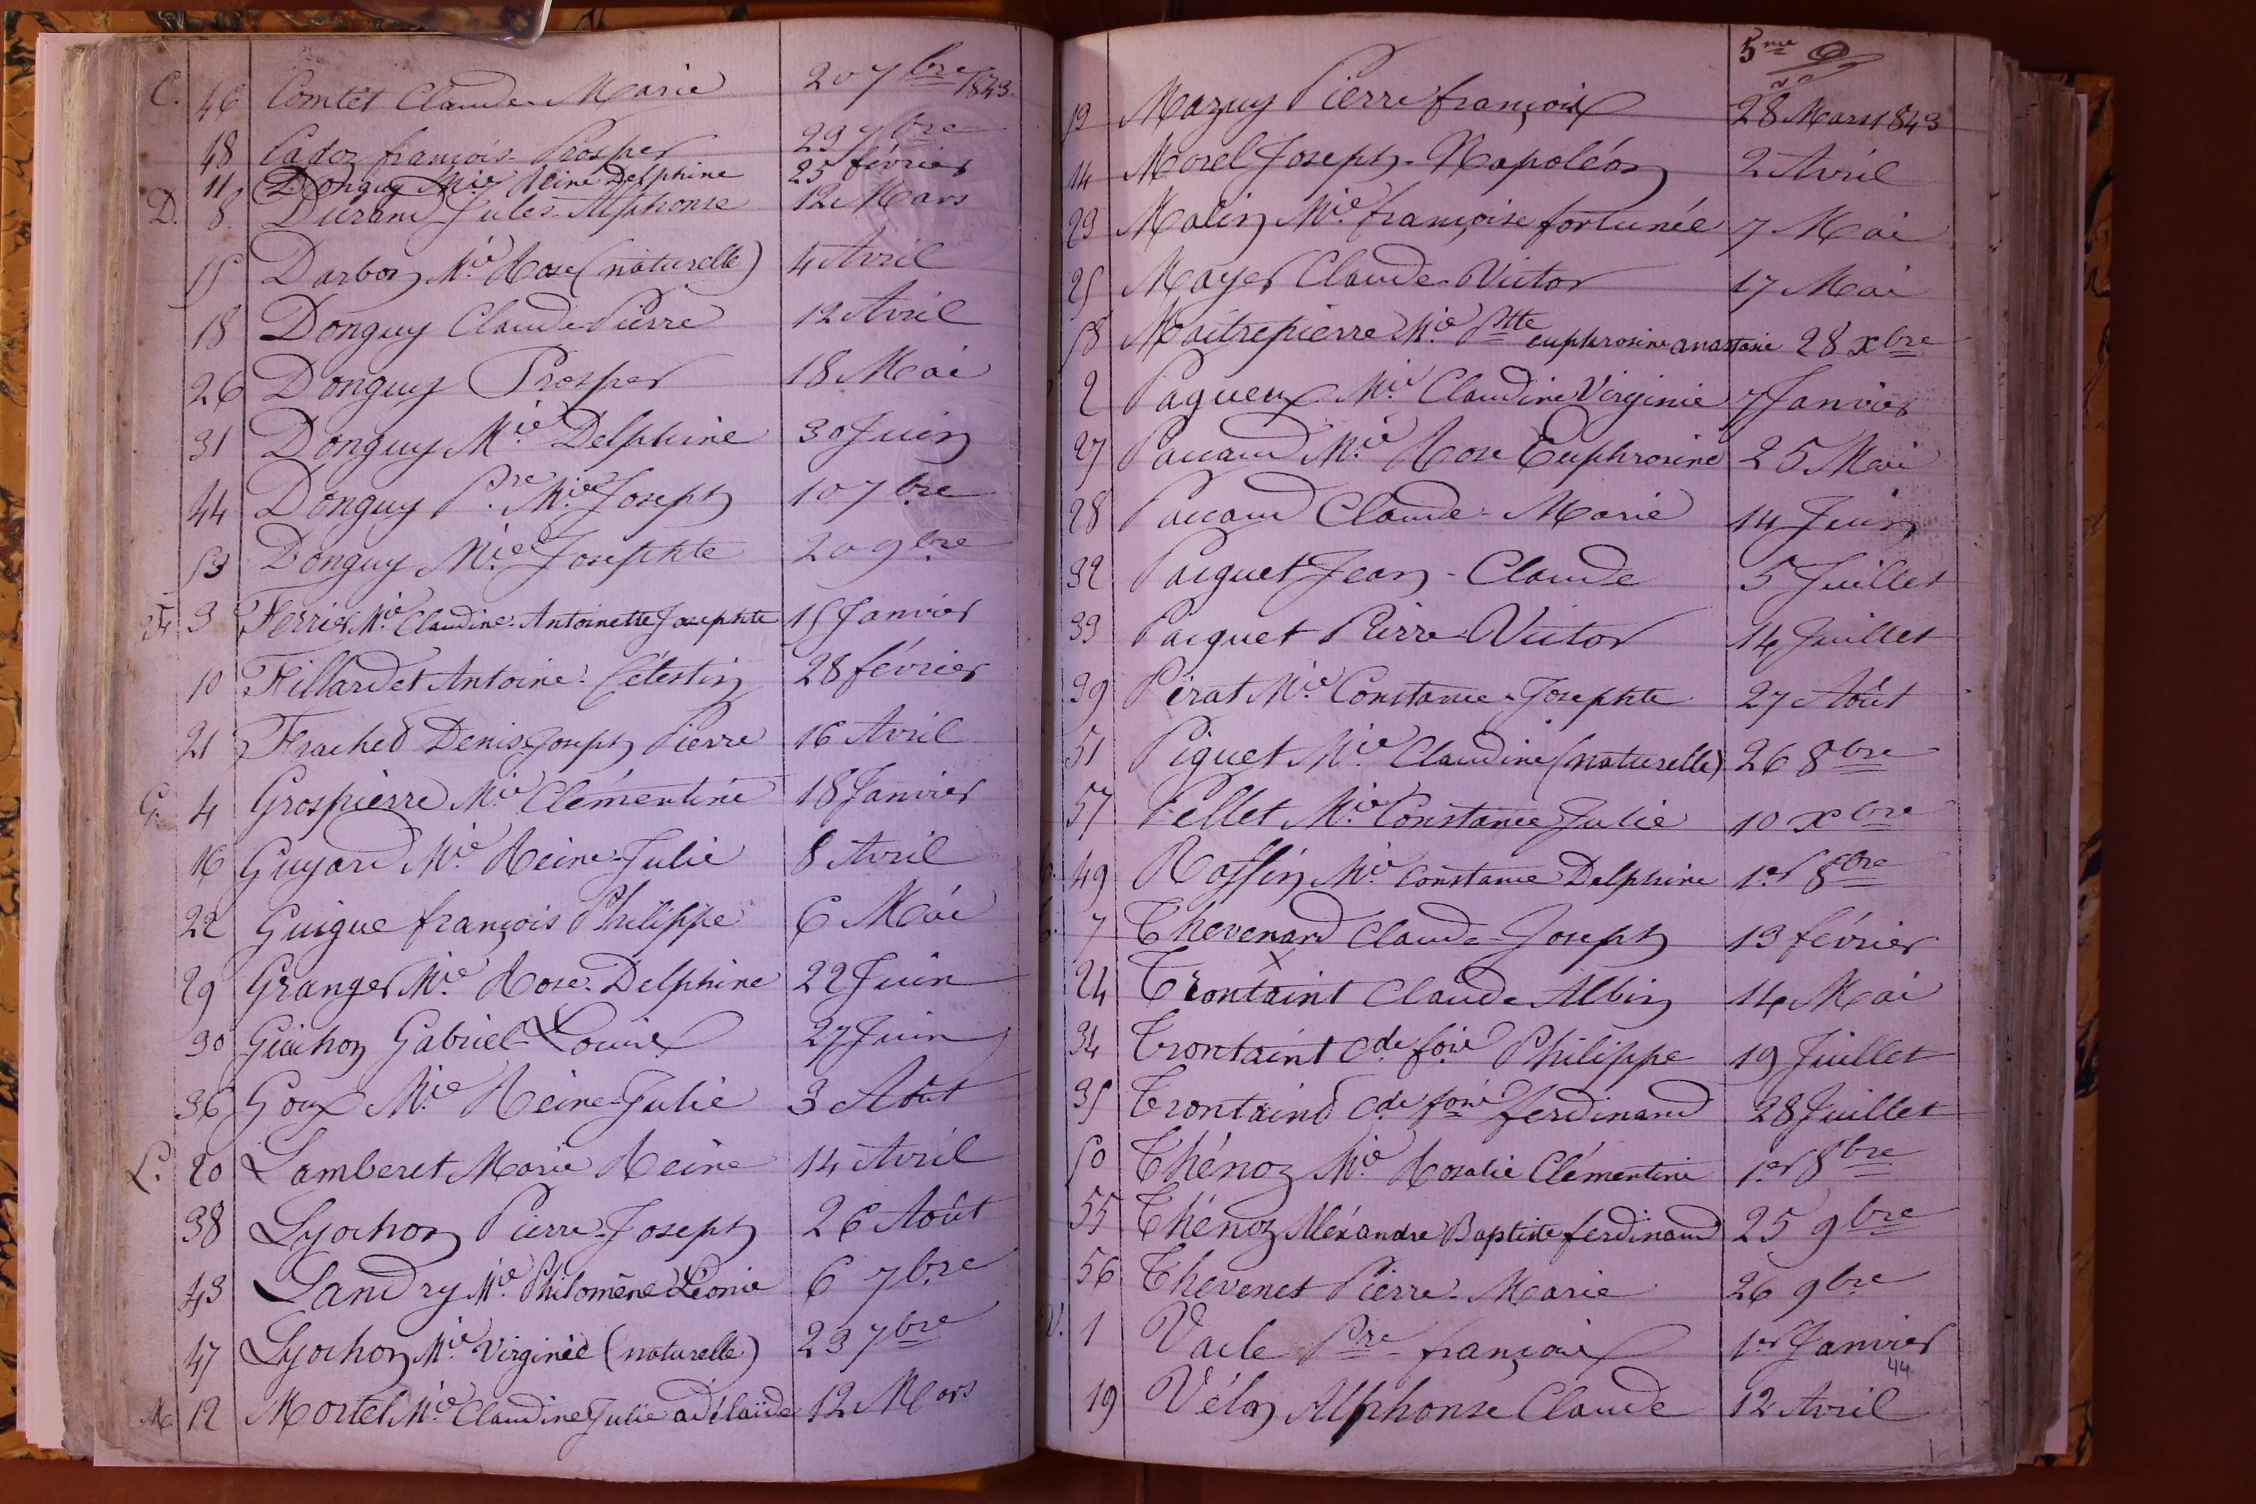 C. 46 Comtet Claude-Marie 20 7bre 1843.
48 Cadoz françois-Prosper 29 7bre
11 Donguy Mie Reine Delphine 25 février
D. 8. Durand Jules-Alphonse 12 Mars
15 Darbon Mie Rose (naturelle) 4 Avril
18 Donguy Claude-Pierre 12 Avril
26 Donguy Prosper 18 Mai
31 Donguy Mie Delphine 30 Juin
44 Donguy Pre Mie Joseph 10 7bre
53 Donguy Mie Josephte 20 9bre
F. 3 Ferrier Mie Claudine-Antoinette Josephte 15 Janvier
10 Fillardet Antoine-Célestin 28 février
21 Frached Denis Joseph Pierre 16 Avril
G. 4 Grospierre Mie Clémentine 18 Janvier
16 Guyard Mie Reine-Julie 8 Avril
22 Guigue françois Philippe 6 Mai
29 Granger Mie Rose-Delphine 22 Juin
30 Guichon Gabriel-Louis 27 Juin
36 Goux Mie Reine-Julie 3 Août
L. 20 Lamberet Marie Reine 14 Avril
38 Lyochon Pierre-Joseph 26 Août
43 Landry Mie Philomène Léonie 6 7bre
47 Lyochon Mie Virginie (naturelle) 23 7bre
M 12 Mortel Mie Claudine Julie adélaïde 12 Mars
5me
13 Mazuy Pierre françois 28 Mars 1843
14 Morel Joseph-Napoléon 2 Avril
23 Malin Mie françoise fortunée 7 Mai
25 Mayer Claude-Victor 17 Mai
58 Maitrepierre Mie Ptte euphrosine anastasie 28 xbre
2 Pagueux Mie Claudine Virginie 7 Janvier
27 Paccaud Mie Rose Euphrosine 25 Mai
28 Paccaud Claude-Marie 14 Juin
32 Paiguet Jean-Claude 5 Juillet
33 Paiguet Pierre-Victor 14 Juillet
39 Pérat Mie Constance-Josephte 27 Août
51 Piguet Mie Claudine (naturelle) 26 8bre
57 Pellet Mie Constance Julie 10 xbre
49 Roffin Mie Constance Delphine 1er 8bre
7 Thevenard Claude-Joseph 13 février
24 Trontaint Claude Albin 14 Mai
34 Trontaint Cde fois Philippe 19 Juillet
35 Trontaind Cde fois ferdinand 28 Juillet
50 Thénoz Mie Rosalie Clémentine 1er 8bre
55 Thénoz Aléxandre Baptiste ferdinand 25 9bre
56 Thevenet Pierre-Marie 26 9bre
V. 1 Vaile Pre françois 1er Janvier
44
19 Vélon Alphonse Claude 12 Avril